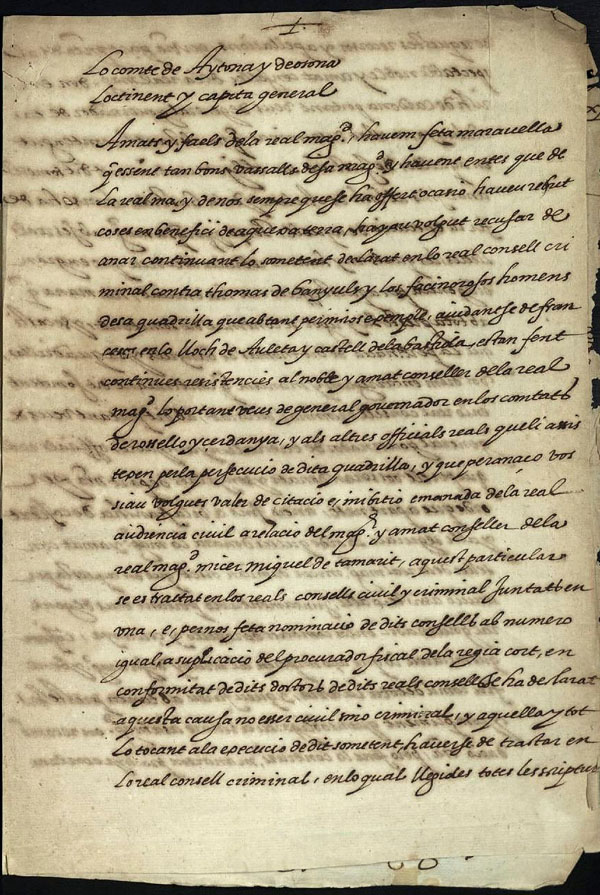 Lo comte de Aytona y de osona
Loctinent y capita general
Amats y faels de la real mag.ᵗ, havem feta maravella
q̃ essent tan bons vassalls de sa mag.ᵗ y havent entes que de
la real ma, y de nos sempre que se ha offert ocasio haveu rebut
coses en benefici de aquexa terra, hajau volgut recusar de
anar continuant lo sometent declarat en lo real consell cri
minal contra thomas de banyuls y los facinorosos homens
de sa quadrilla que ab tant pernicios exemple, aiudantse de fran
cesos en lo lloch de Auleta y castell de la bastida, estan fent
continues resistencies al noble y amat conseller de la real
mag.ᵗ lo portant veus de general governador en los comtats
de rossello y cerdanya, y als altres officials reals que li assis
texen per la persecucio de dita quadrilla, y que per anaco vos
siau volguts valer de citacio e, inibitio emanada de la real
audiencia civil a relacio del mag.ᶜʰ y amat conseller de la
real mag.ᵗ micer miquel de tamarit, aquest particular
se es tractat en los reals consells civil y criminal Juntats en
vna, e, per nos feta nominacio de dits consells ab numero
igual, a suplicacio del procurador fiscal de la regia cort, en
conformitat de dits doctors de dits reals consells se ha declarat
aquesta causa no esser civil sino criminal, y aquella y tot
lo tocant a la execucio de dit sometent, haverse de tractar en
lo real consell criminal, en lo qual llegides totes les scriptur